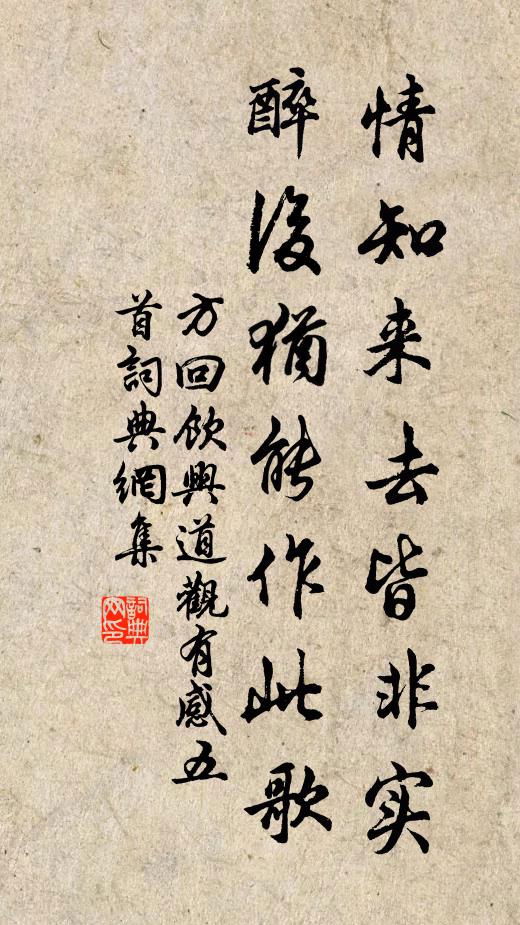 情知来去皆非实
醉後猶能作此歌
方回飲興道觀有感五
首詞典網集
詞典
网印